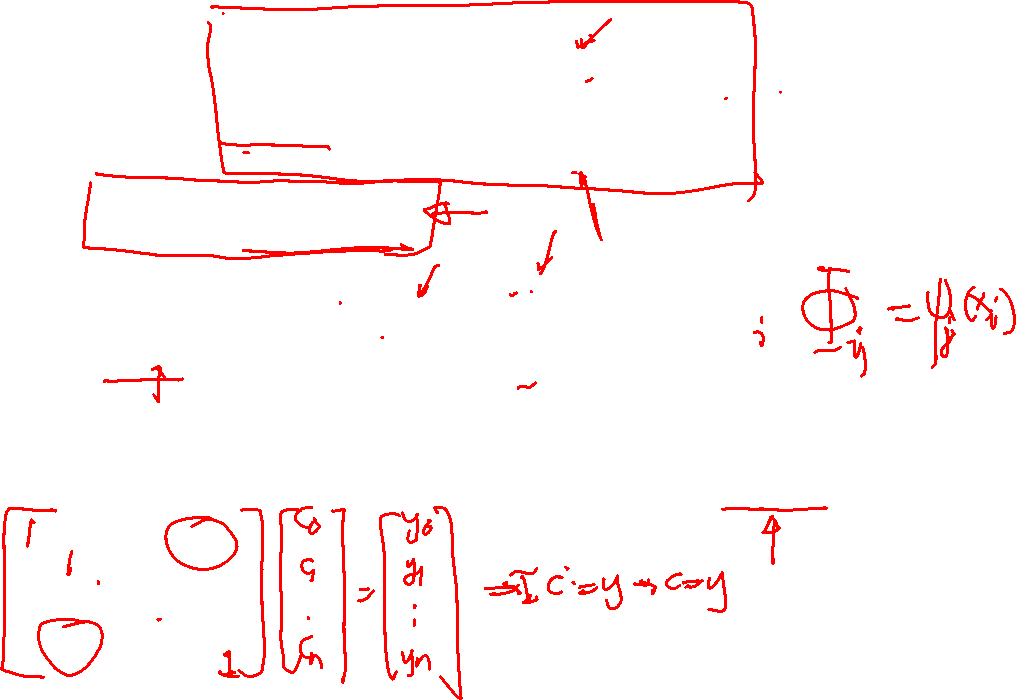 ; Φ_ij = ψ_j(x_i)
[1 1 . . 0 0 1] [c₀ c₁ . cₙ] = [y₀ y₁ : yₙ] ⇒ I c = y → c = y